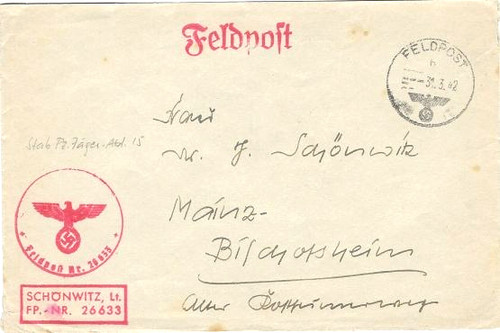 Feldpost
FELDPOST
b
31.3.42
Frau
J. Schönwitz
Stab Pz. Jäger-Abt. 15
Mainz-
Bischofsheim
Feldpost Nr. 26633
SCHÖNWITZ, Lt.
FP.-NR. 26633
Alter